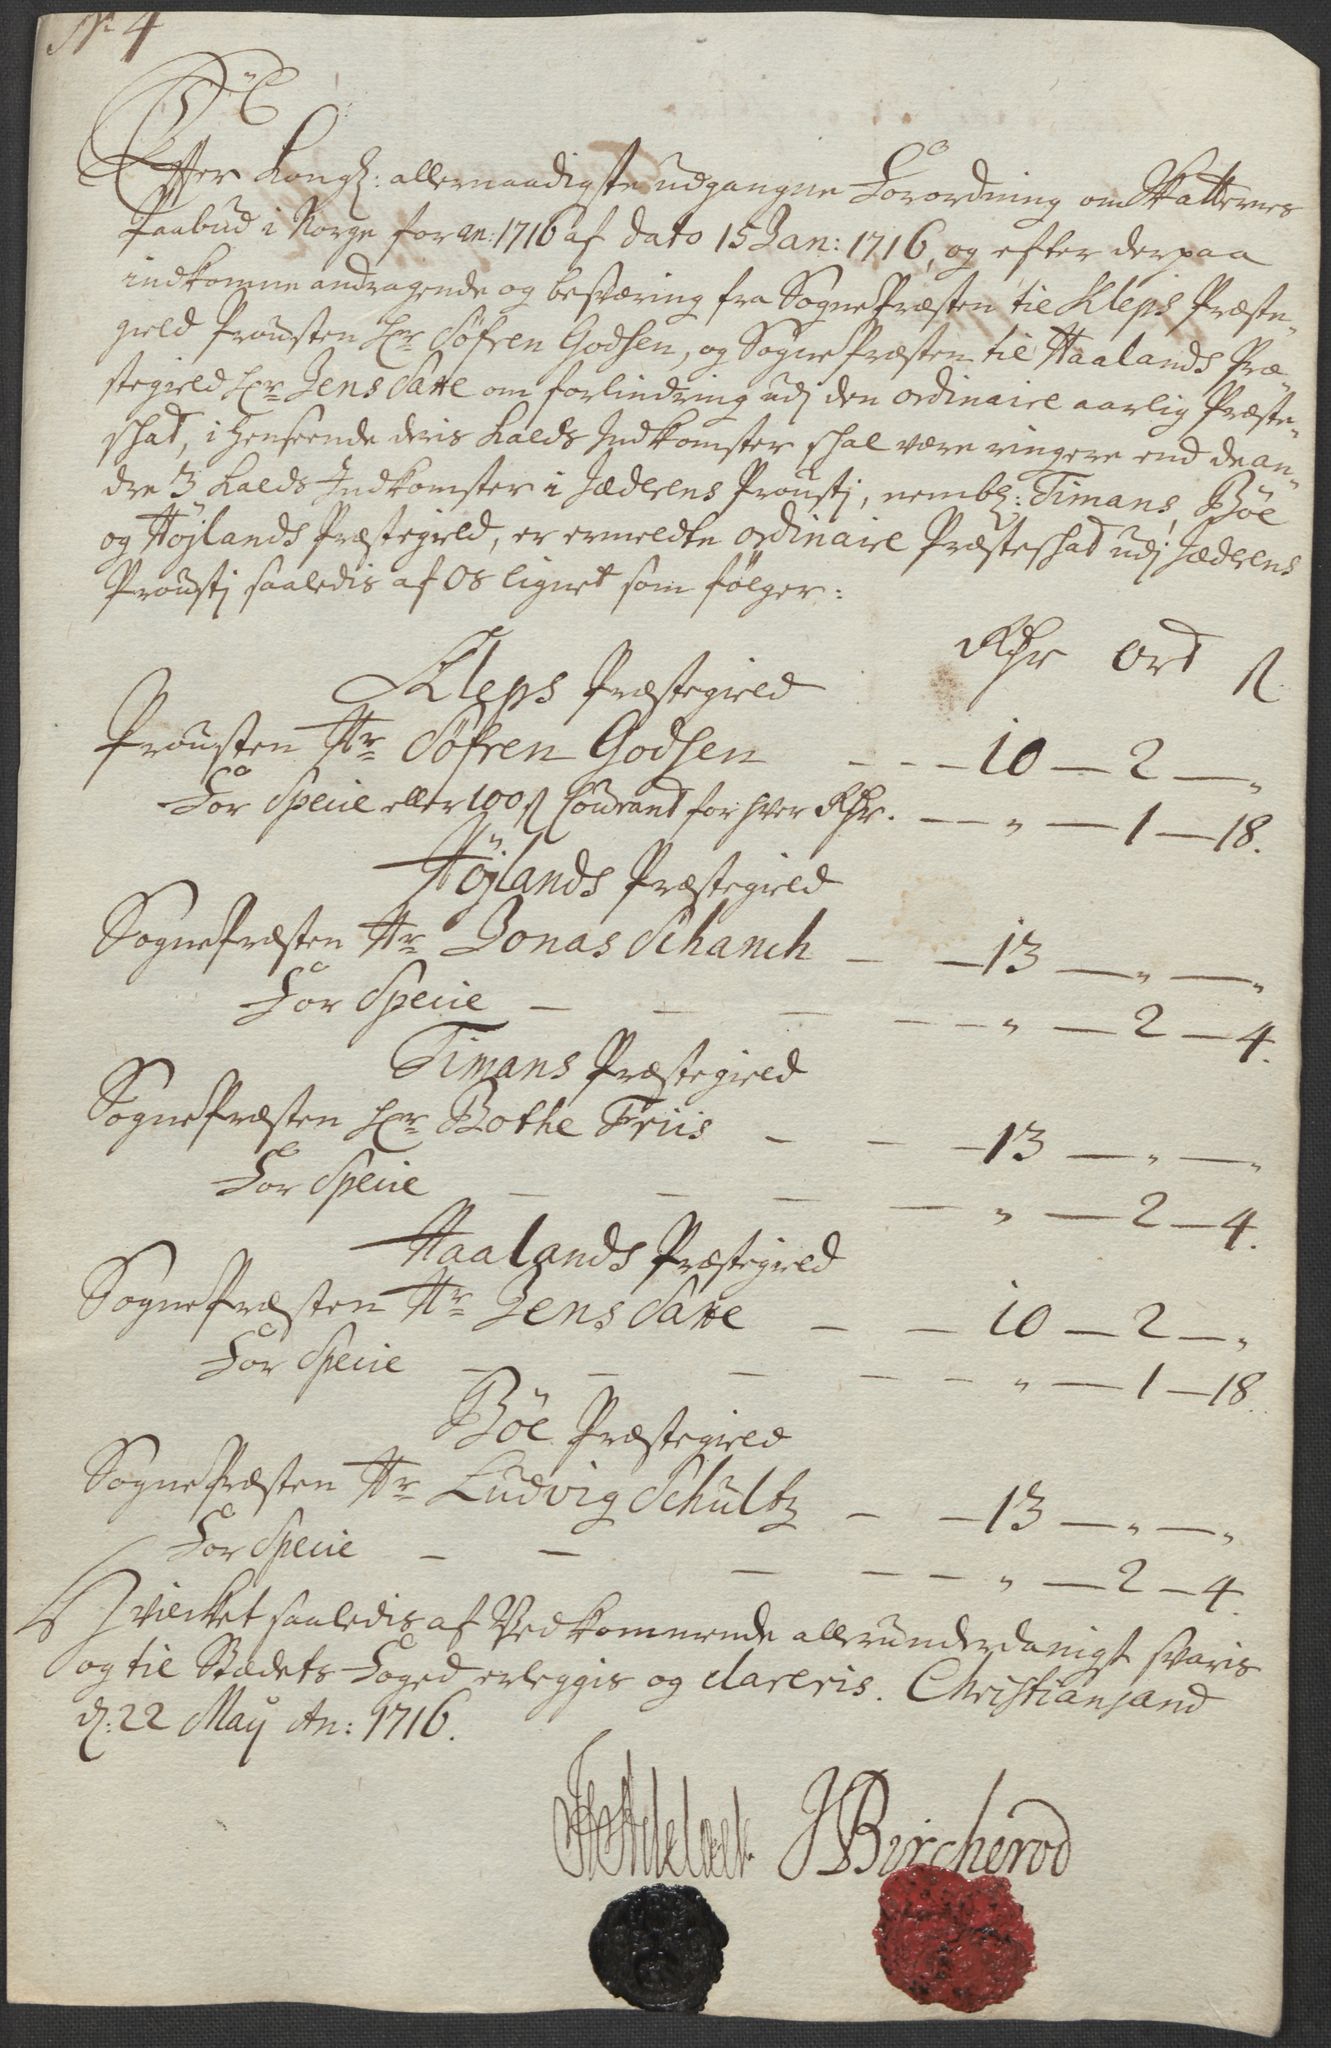 No 4
Efter Kongl: allernaadigste udgangne Forordning om Skatternes
Paabud i Norge for an: 1716 af dato 15 Jan: 1716, og efter derpaa
indkomne andragende og besværing fra SognePræsten til Kleps Præste„
gield Prousten Hr Söfren Godsen, og SognePræsten til Haalands Præ„
stegield Hr Jens Satte om forlindring udj den ordinaire aarlig Præste„
schat, i henseende deris Kalds Indkomster schal være ringere end de an„
dre 3 Kalds Indkomster i Jæderens Proustj, nembl: Timans, Böe
og Höjlands Præstegield, er ermeldte ordinaire Præsteschat udj Jæderens
Proustj saaledis af Os lignet som fölger:
Rdr ort ß
Kleps Præstegield
Prousten Hr Söfren Godsen — — — 10 — 2 — „
For Specie eller 100 ß Courant for hver Rdr. — „ — 1 — 18.
Höjlands Præstegield
SognePræsten Hr Jonas Schanch — — 13 — „ — „
For Specie — — — — — „ — 2 — 4.
Timans Præstegield
SognePræsten Hr Bothe Friis — — — 13 — „ — „
For Specie — — — — „ — 2 — 4.
Haalands Præstegield
SognePræsten Hr Jens Satte — — 10 — 2 — „
For Specie — — — — — „ — 1 — 18.
Böe Præstegield
SognePræsten Hr Ludvig Schultz — — 13 — „ — „
For Specie — — — — — „ — 2 — 4.
Hvilcket saaledis af Vedkommende allerunderdanigst svaris
og til Stædets Foged erleggis og clareris. Christiansand
d: 22 May An: 1716.
JBircherod